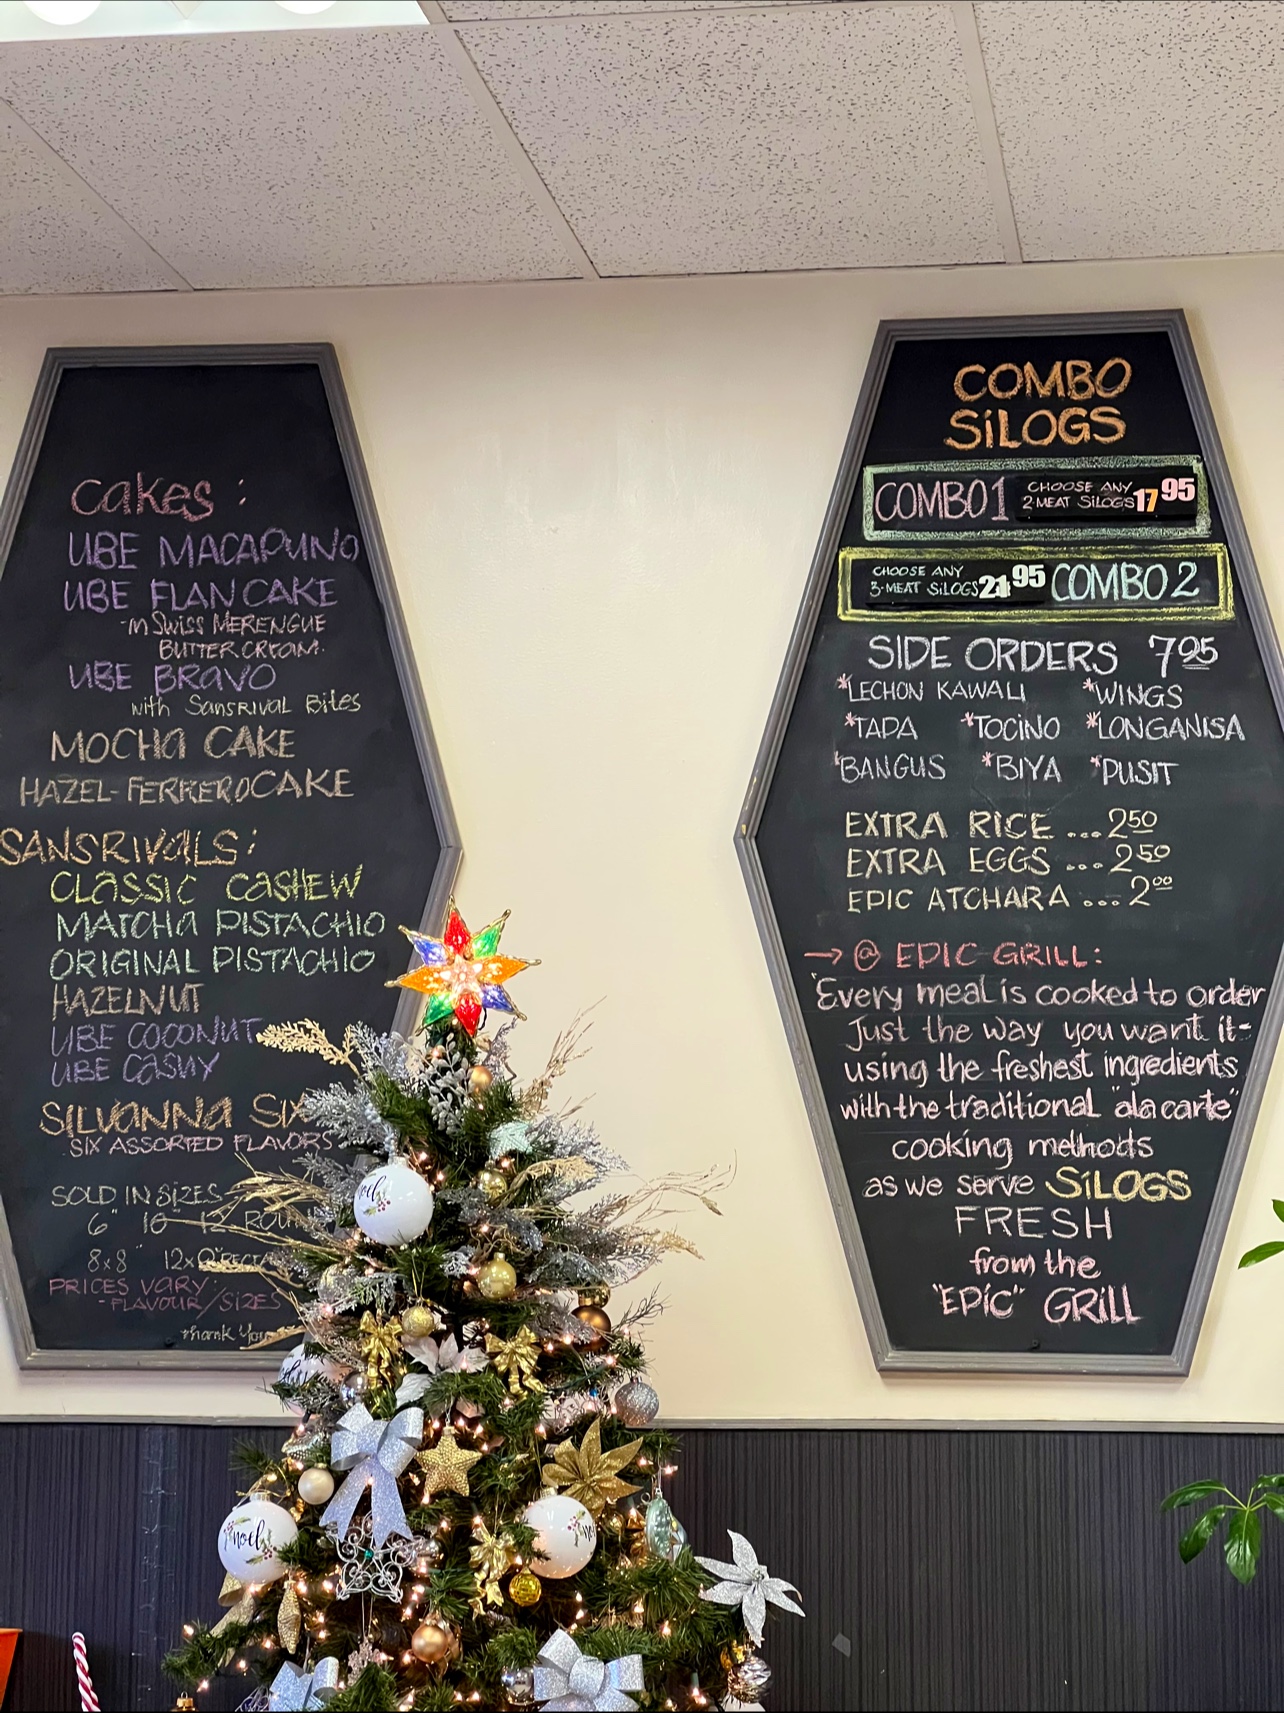 Cakes:
UBE MACAPUNO
UBE FLAN CAKE
-in Swiss MERENGUE
BUTTER CREAM.
UBE BRAVO
with Sansrival Bites
MOCHA CAKE
HAZEL-FERRERO CAKE
SANSRIVALS:
CLASSIC CASHEW
MATCHA PISTACHIO
ORIGINAL PISTACHIO
HAZELNUT
UBE COCONUT
UBE CASHY
SILVANNA SIX
SIX ASSORTED FLAVORS
SOLD IN SIZES
6" 10" 12"
8x8"
PRICES VARY:
-FLAVOUR/SIZES
Thank You
COMBO
SiLOGS
COMBO 1 CHOOSE ANY
2-MEAT SiLOGS 17 95
CHOOSE ANY
3-MEAT SiLOGS 21 95 COMBO 2
SIDE ORDERS 7 95
*LECHON KAWALI *WINGS
*TAPA *TOCINO *LONGANISA
*BANGUS *BIYA *PUSIT
EXTRA RICE ...2 50
EXTRA EGGS ...2 50
EPIC ATCHARA ...2 00
→ @ EPIC GRILL:
"Every meal is cooked to order
Just the way you want it-
using the freshest ingredients
with the traditional "ala carte"
cooking methods
as we serve SiLOGS
FRESH
from the
"EPIC" GRiLL
noel
noel